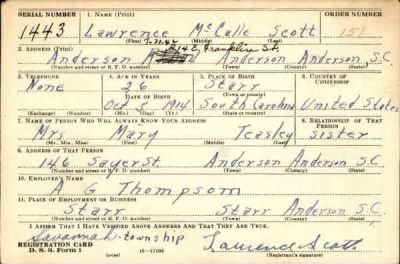 SERIAL NUMBER 1. NAME (Print) ORDER NUMBER
1443 Lawrence McCalle Scott 151
(First) (Middle) (Last)
7-31-42 214 E. Franklin St.
2. ADDRESS (Print)
Anderson Anderson Anderson, S.C.
(Number and street or R. F. D. number) (Town) (County) (State)
3. TELEPHONE 4. AGE IN YEARS 5. PLACE OF BIRTH 6. COUNTRY OF CITIZENSHIP
None 26 Starr
(Town or county)
DATE OF BIRTH
Oct 5 1914 South Carolina United States
(Exchange) (Number) (Mo.) (Day) (Yr.) (State or country)
7. NAME OF PERSON WHO WILL ALWAYS KNOW YOUR ADDRESS 8. RELATIONSHIP OF THAT PERSON
Mrs Mary Teasley Sister
(Mr., Mrs., Miss) (First) (Middle) (Last)
9. ADDRESS OF THAT PERSON
146 Sayer St Anderson Anderson S.C.
(Number and street or R. F. D. number) (Town) (County) (State)
10. EMPLOYER'S NAME
A G Thompson
11. PLACE OF EMPLOYMENT OR BUSINESS
Starr Starr Anderson S.C.
(Number and street or R. F. D. number) (Town) (County) (State)
I AFFIRM THAT I HAVE VERIFIED ABOVE ANSWERS AND THAT THEY ARE TRUE.
Savannah-township Lawrence Scott
REGISTRATION CARD
D. S. S. Form 1 (over) 16-17100 (Registrant's signature)